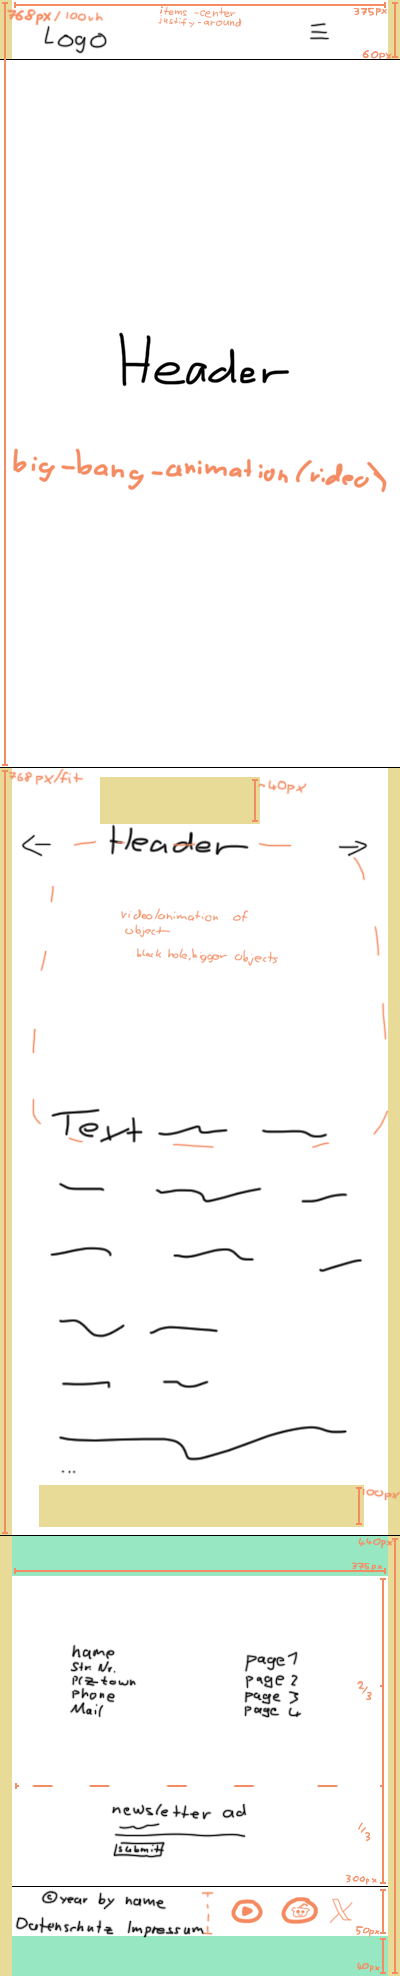 768px/100vh
items-center
justify-around
375px
Logo
60px
Header
big-bang-animation(video)
768px/fit
~40px
Header
video/animation of
object
black hole, bigger objects
Text
...
100px
440px
375px
name
Str. Nr.
PLZ town
phone
Mail
page 1
page 2
page 3
page 4
2/3
newsletter ad
submit
1/3
300px
©year by name
Datenschutz Impressum
50px
40px